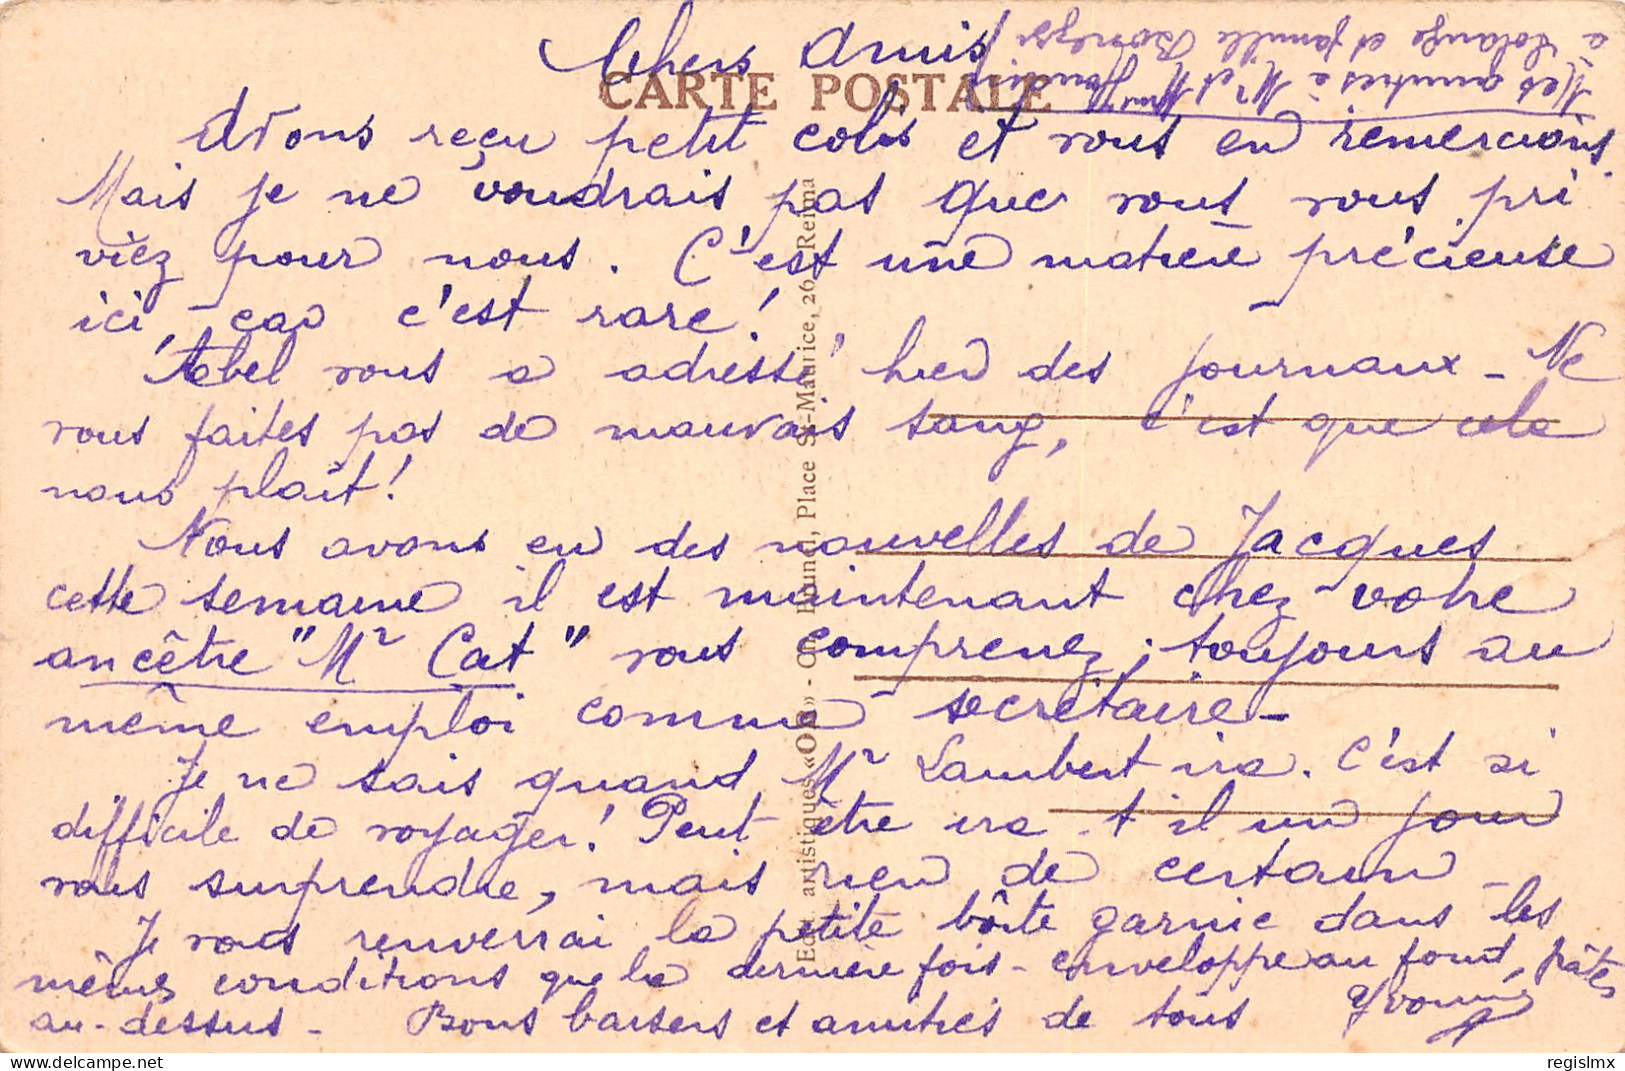 Chers Amis
CARTE POSTALE
Avons reçu petit colis et vous en remercions.
Mais je ne voudrais pas que vous vous pri
viez pour nous. C'est une matière précieuse
ici, car c'est rare!
Abel vous a adressé hier des journaux - Ne
vous faites pas de mauvais sang, c'est que cela
nous plaît!
Nous avons eu des nouvelles de Jacques
cette semaine il est maintenant chez votre
ancêtre "Mr Cat" vous comprenez; toujours au
même emploi comme secrétaire -
Je ne sais quand Mr Lambert ira. C'est si
difficile de voyager! Peut être ira-t il un jour
vous surprendre, mais rien de certain -
Je vous renverrai la petite boîte garnie dans les
mêmes conditions que la dernière fois - enveloppe au fond, pâtes
au-dessus - Bons baisers et amitiés de tous Yvonne
Mes amitiés à Mr et Mme
à Solange et famille
Edit. artistiques «OR» - Ch. Brunel, Place St-Maurice, 26, Reims
regislmx